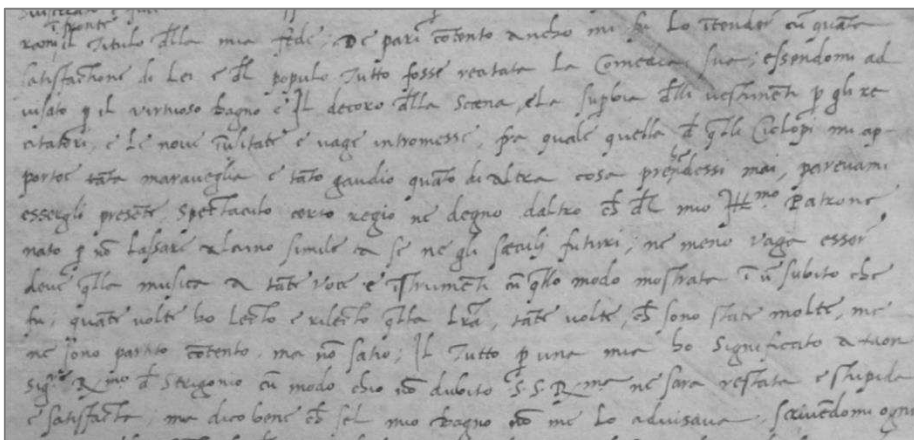 in fronte
il Titulo dlla mia fede, De pari cõtento ancho mi fu lo ĩtender cũ quãta
satisfactione di Lei e dl populo Tutto fosse recitata La Comedia sua, essendomi ad
uisato q il virtuoso bagno e Il decoro dlla Scæna, e La supbia dlli uestimenti p gli re
citatori, e le noue ĩusitate e vage intromesse, fra quale quella d qlli Ciclopi mi ap-
portoe tãta maraueglia e tãto gaudio quãto di altra cosa prehendessi mai, pareuami
essergli presente, Spectaculo certo regio ne degno daltro ch dl mio Ill.mo Patrone
nato p nõ lassare alcuno simile a se ne gli sæculj futuri, ne meno vaga esser
deue qlla musica a tãte voce e ĩstrumenti cũ qllo modo mostrata ĩ ũ subito che
fu, quãte volte ho Lecto e rilecto qlla Lra, tãte volte, ch sono state molte, me
ne sono partito cõtento, ma nõ satio, Il Tutto p una mia ho significato a mon
sig.re R.mo d Strigonio cũ modo chio nõ dubito S. S. R.ma ne sara restata e stupida
e satisfacta, ma dico bene ch sel mio bagno nõ me lo aduisaua, scriuẽdomi ogni